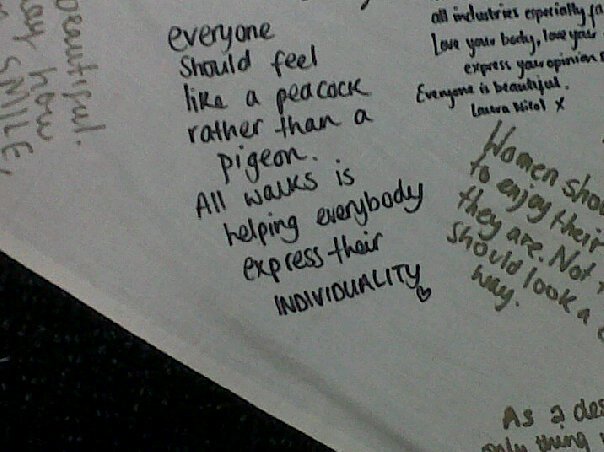 everyone
Should feel
like a peacock
rather than a
pigeon.
All walks is
helping everybody
express their
INDIVIDUALITY
all industries especially
Love your body, love your
express your opinion
Everyone is beautiful.
Laura X
Women
to enjoy their
they are. Not
should look a
way.
beautiful.
how
SMILE,
As a
only thing